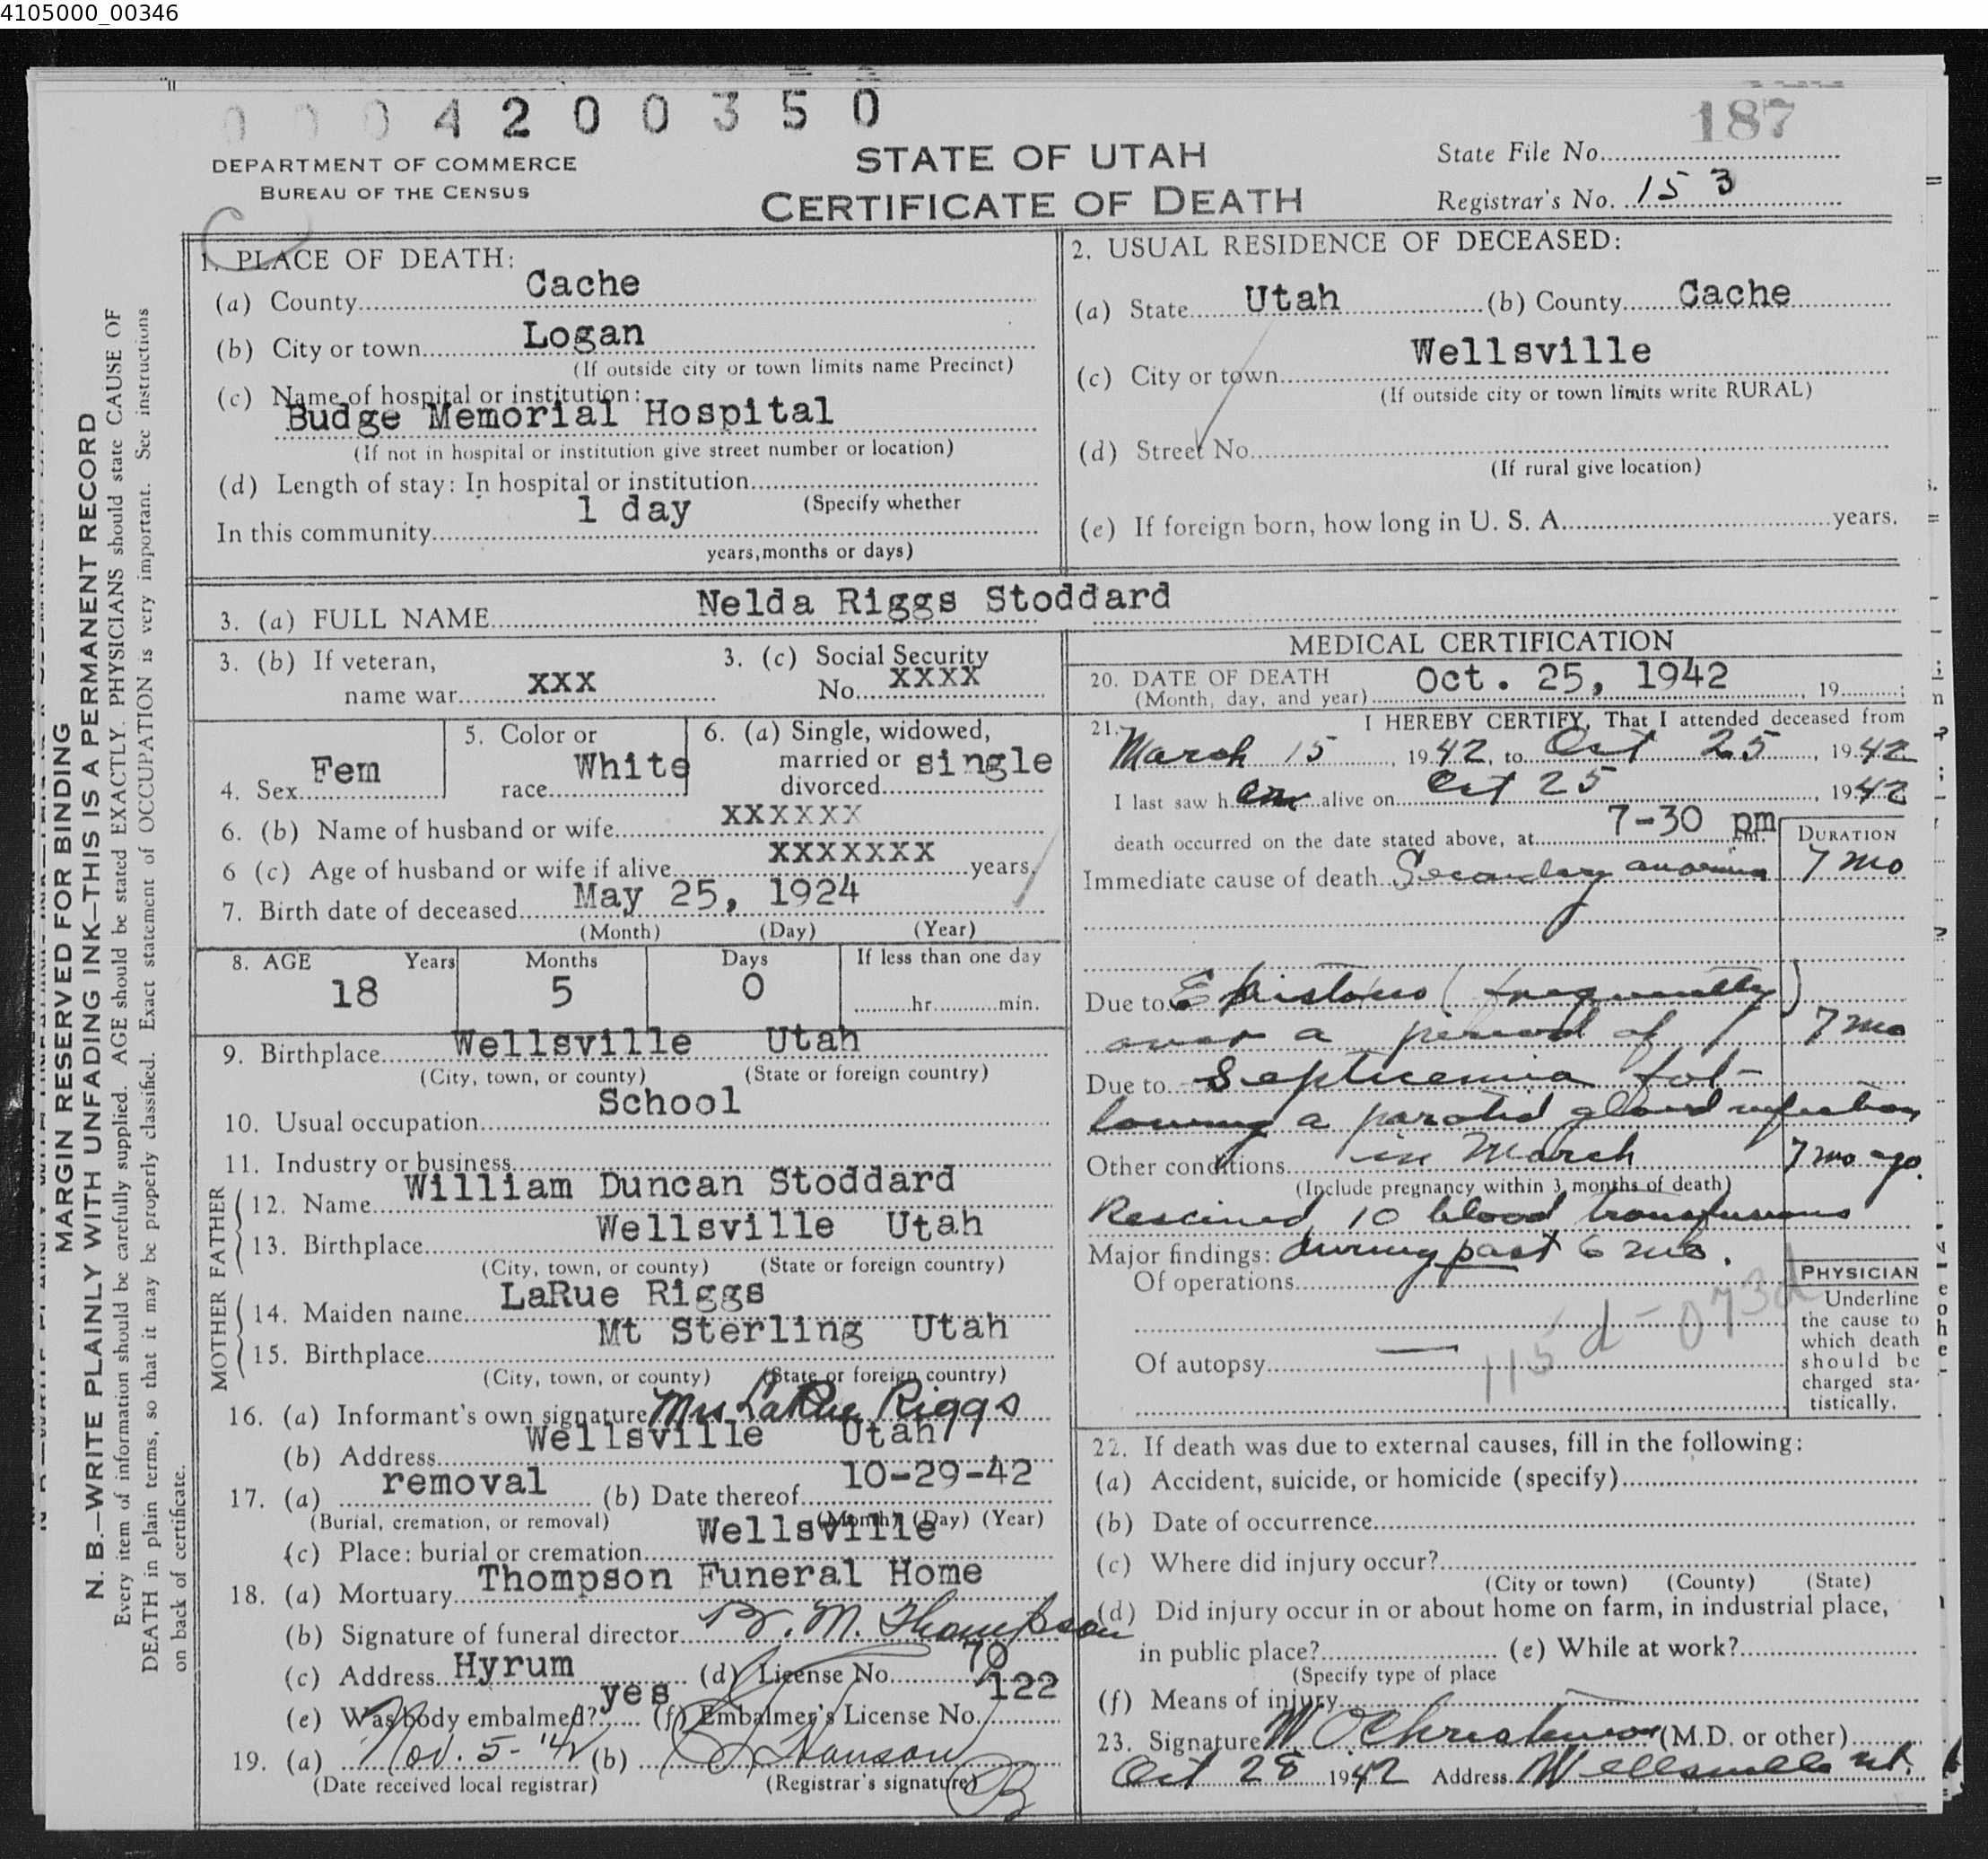 4105000_00346
0004200350
187
DEPARTMENT OF COMMERCE
BUREAU OF THE CENSUS
STATE OF UTAH
CERTIFICATE OF DEATH
State File No.
Registrar's No. 153
1. PLACE OF DEATH:
(a) County Cache
(b) City or town Logan
(If outside city or town limits name Precinct)
(c) Name of hospital or institution:
Budge Memorial Hospital
(If not in hospital or institution give street number or location)
(d) Length of stay: In hospital or institution
(Specify whether
In this community 1 day
years, months or days)
2. USUAL RESIDENCE OF DECEASED:
(a) State Utah (b) County Cache
(c) City or town Wellsville
(If outside city or town limits write RURAL)
(d) Street No.
(If rural give location)
(e) If foreign born, how long in U. S. A. years.
3. (a) FULL NAME Nelda Riggs Stoddard
3. (b) If veteran, name war xxx
3. (c) Social Security No. XXXX
4. Sex Fem
5. Color or race White
6. (a) Single, widowed, married or divorced single
6. (b) Name of husband or wife xxxxxx
6 (c) Age of husband or wife if alive xxxxxxx years
7. Birth date of deceased May 25, 1924
(Month) (Day) (Year)
8. AGE Years Months Days If less than one day
18 5 0 hr. min.
9. Birthplace Wellsville Utah
(City, town, or county) (State or foreign country)
10. Usual occupation School
11. Industry or business
FATHER
12. Name William Duncan Stoddard
13. Birthplace Wellsville Utah
(City, town, or county) (State or foreign country)
MOTHER
14. Maiden name LaRue Riggs
15. Birthplace Mt Sterling Utah
(City, town, or county) (State or foreign country)
16. (a) Informant's own signature Mrs LaRue Riggs
(b) Address Wellsville Utah
17. (a) removal (b) Date thereof 10-29-42
(Burial, cremation, or removal) (Month) (Day) (Year)
(c) Place: burial or cremation Wellsville
18. (a) Mortuary Thompson Funeral Home
(b) Signature of funeral director M. Thompson
(c) Address Hyrum (d) License No. 70
(e) Was body embalmed? yes (f) Embalmer's License No. 122
19. (a) Nov. 5-'42 (b) Hanson
(Date received local registrar) (Registrar's signature)
B
MEDICAL CERTIFICATION
20. DATE OF DEATH Oct. 25, 1942
(Month, day, and year) , 19 ;
21. I HEREBY CERTIFY, That I attended deceased from
March 15, 1942, to Oct 25, 1942
I last saw h er alive on Oct 25, 1942
death occurred on the date stated above, at 7-30 pm
DURATION
Immediate cause of death Secondary anaemia 7 mo
Due to Epistaxis (frequently)
over a period of 7 mo
Due to Septicemia fol-
lowing a parotid gland infection
Other conditions in March 7 mo ago.
(Include pregnancy within 3 months of death)
Received 10 blood transfusions
Major findings: during past 6 mo.
Of operations
115 d - 073d
Of autopsy —
PHYSICIAN
Underline
the cause to
which death
should be
charged sta-
tistically.
22. If death was due to external causes, fill in the following:
(a) Accident, suicide, or homicide (specify)
(b) Date of occurrence
(c) Where did injury occur?
(City or town) (County) (State)
(d) Did injury occur in or about home on farm, in industrial place,
in public place? (e) While at work?
(Specify type of place
(f) Means of injury
23. Signature W O Christenson (M.D. or other)
Oct 28 1942 Address Wellsville Ut.
MARGIN RESERVED FOR BINDING
N. B.—WRITE PLAINLY WITH UNFADING INK—THIS IS A PERMANENT RECORD
Every item of information should be carefully supplied. AGE should be stated EXACTLY. PHYSICIANS should state CAUSE OF
DEATH in plain terms, so that it may be properly classified. Exact statement of OCCUPATION is very important. See instructions
on back of certificate.